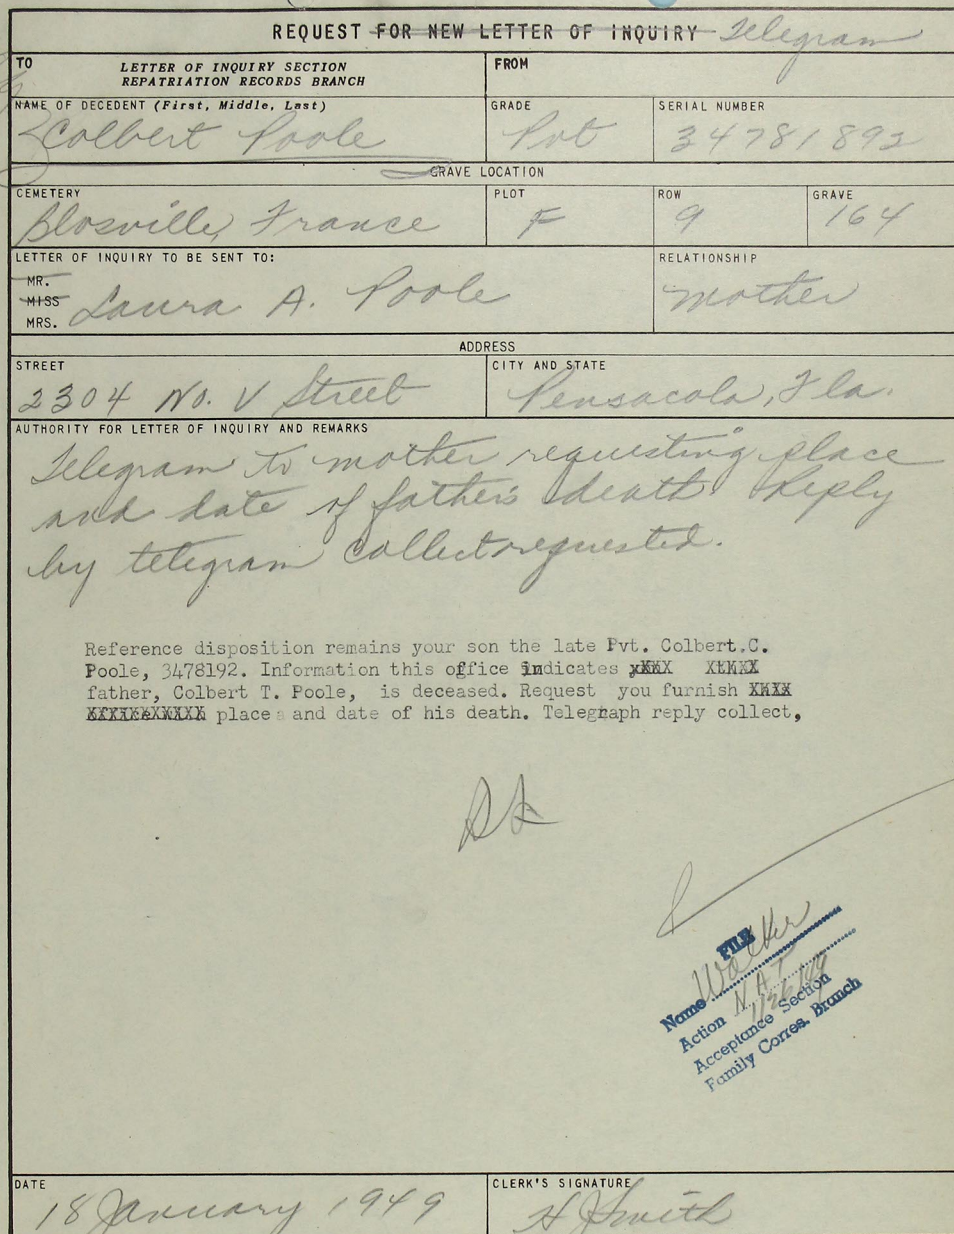 REQUEST FOR NEW LETTER OF INQUIRY Telegram
TO LETTER OF INQUIRY SECTION
REPATRIATION RECORDS BRANCH
FROM
NAME OF DECEDENT (First, Middle, Last)
Colbert Poole
GRADE
Pvt
SERIAL NUMBER
34781892
GRAVE LOCATION
CEMETERY
Blosville, France
PLOT
F
ROW
9
GRAVE
164
LETTER OF INQUIRY TO BE SENT TO:
MR.
MISS
MRS.
Laura A. Poole
RELATIONSHIP
Mother
ADDRESS
STREET
2304 No. V Street
CITY AND STATE
Pensacola, Fla.
AUTHORITY FOR LETTER OF INQUIRY AND REMARKS
Telegram to mother requesting place
and date of father's death. Reply
by telegram collect requested.
Reference disposition remains your son the late Pvt. Colbert.C.
Poole, 3478192. Information this office indicates
father, Colbert T. Poole, is deceased. Request you furnish
place and date of his death. Telegraph reply collect,
FILE
Name Walker
Action N.A.T
1/26/49
Acceptance Section
Family Corres. Branch
DATE
18 January 1949
CLERK'S SIGNATURE
H Smith